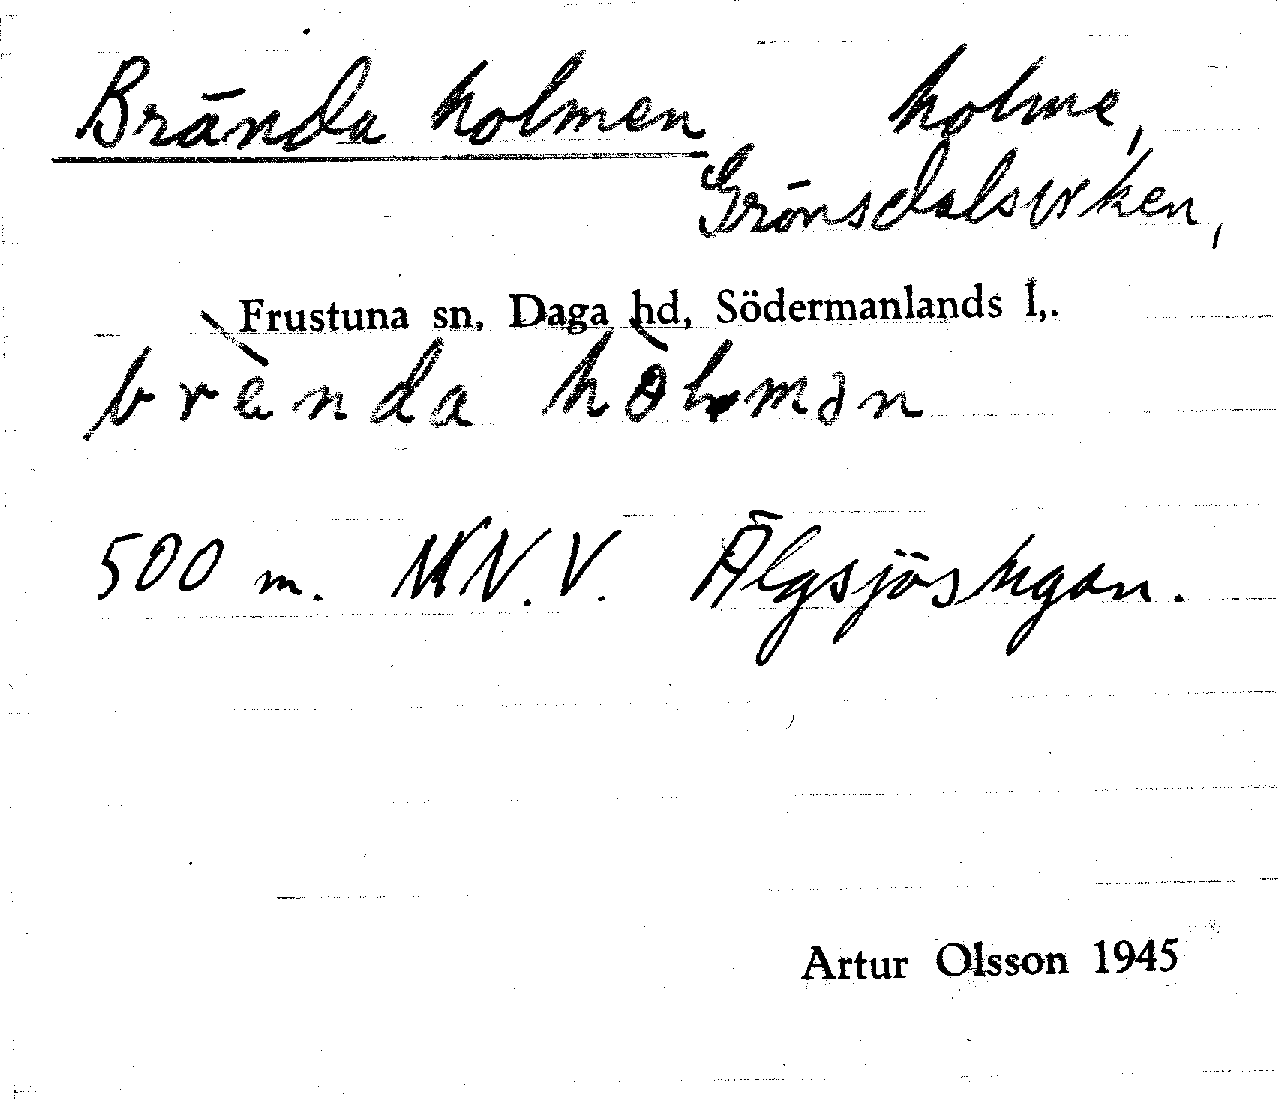 Brända holmen holme,
Grönsdalsviken,
Frustuna sn, Daga hd, Södermanlands l,.
brὲnda hòlmən
500 m. N.V. Älgsjöstugan.
Artur Olsson 1945